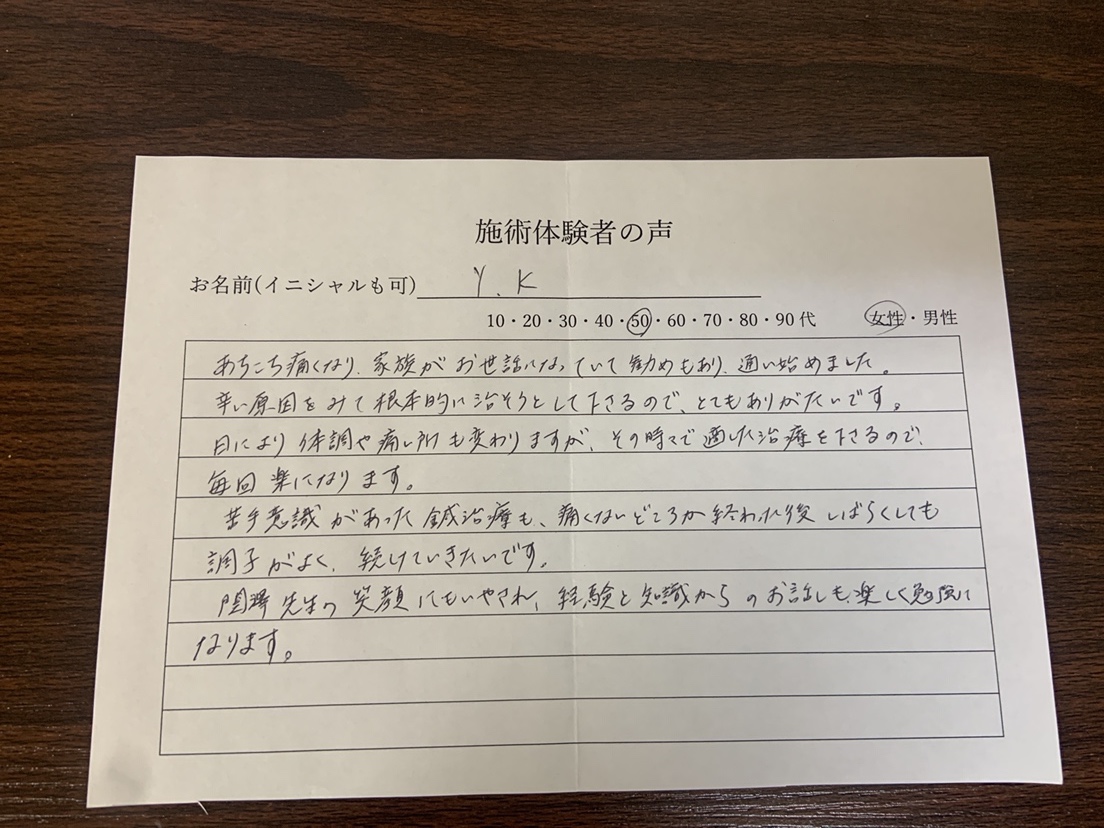 施術体験者の声
お名前(イニシャルも可) Y.K
10・20・30・40・50・60・70・80・90代 女性・男性
あちこち痛くなり、家族がお世話になっていて勧めもあり、通い始めました。
辛い原因をみて根本的に治そうとして下さるので、とてもありがたいです。
日により体調や痛い所も変わりますが、その時々で適した治療を下さるので、
毎回楽になります。
苦手意識があった鍼治療も、痛くないどころか終わった後しばらくしても
調子がよく、続けていきたいです。
先生の笑顔にもいやされ、経験と知識からのお話しも楽しく勉強に
なります。